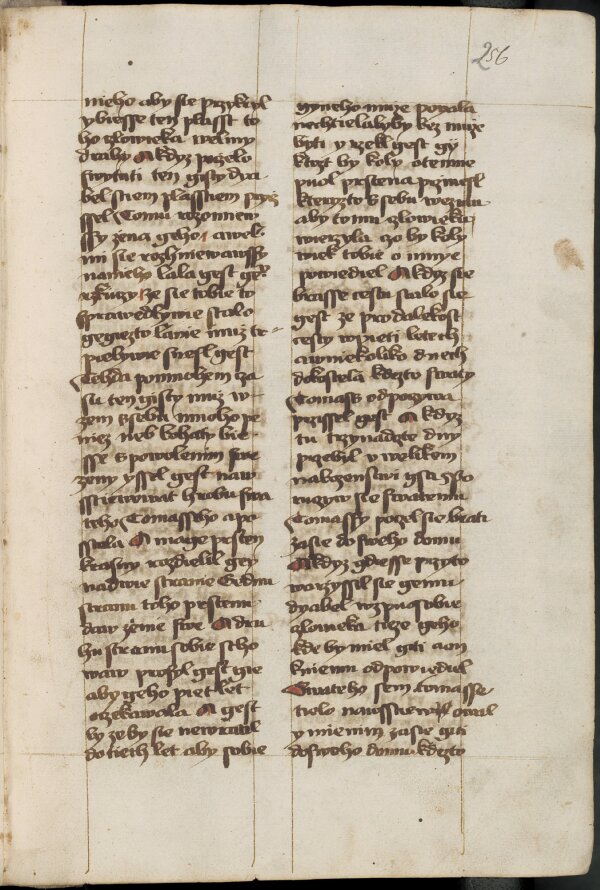 256
nieho aby sie przykryl
y biesse ten plasst to
ho czlowieka welmy
drahy A kdyz pogelo
swrtuti ten gisty dia
bel s tiem plasstiem pryc
ssel Tomu rozomiew
ssy zena geho awel
mi sie rozhniewawssy
nanieho lala gest gie
rzkuczy ze sie tobie to
sprawedlywie stalo
gegiezto lanie muz tr
pieliwie snesl gest
Tehda po mnohem cza
su ten gisty muz w
zem s sebu mnoho pe
niez neb bohaty bie
sse s powolenim swe
zeny yssel gest naw
sstiewowat hrobu swa
teho Tomassie apo
sstola A mage prsten
krasny rozdielil gey
nadwie stranie Gednu
stranu toho prstenu
daw zenie swe A dru
hu stranu sobie scho
waw prosyl gest gie
aby geho piet let
oczekawala A gest
by ze by sie newratil
do tiech let aby sobie
gyneho muze pogala
nechtielalyby bez muze
byti y rzekl gest gy
ktoz by koly otemne
puol prstena przinesl
kteryzto s sebu wezmu
aby tomu czlowieku
wierzyla czo by koly
wiek tobie o mnye
powiediel A kdyz sie
brasse cestu stalo sie
gest ze pro dalekost
cesty w pieti letech
a w niekoliko dnech
do kostela kdezto swaty
Tomass odpoczywa
przissel gest A kdyz
tu trzynadzte dny
przebil w welikem
nabozenstwi gsa Spo
ruczyw sie swatemu
Tomassy pogel sie brati
zasie do sweho domu
A kdyz gdiesse przyto
warzyssil sie gemu
dyabel wzpusobie
czlowieka tieze geho
kde by miel giti a on
k niemu odpowiediel
Swateho sem Tomasse
tielo nawsstiewowal
y mienim zasie giti
do sweho domu kdezto